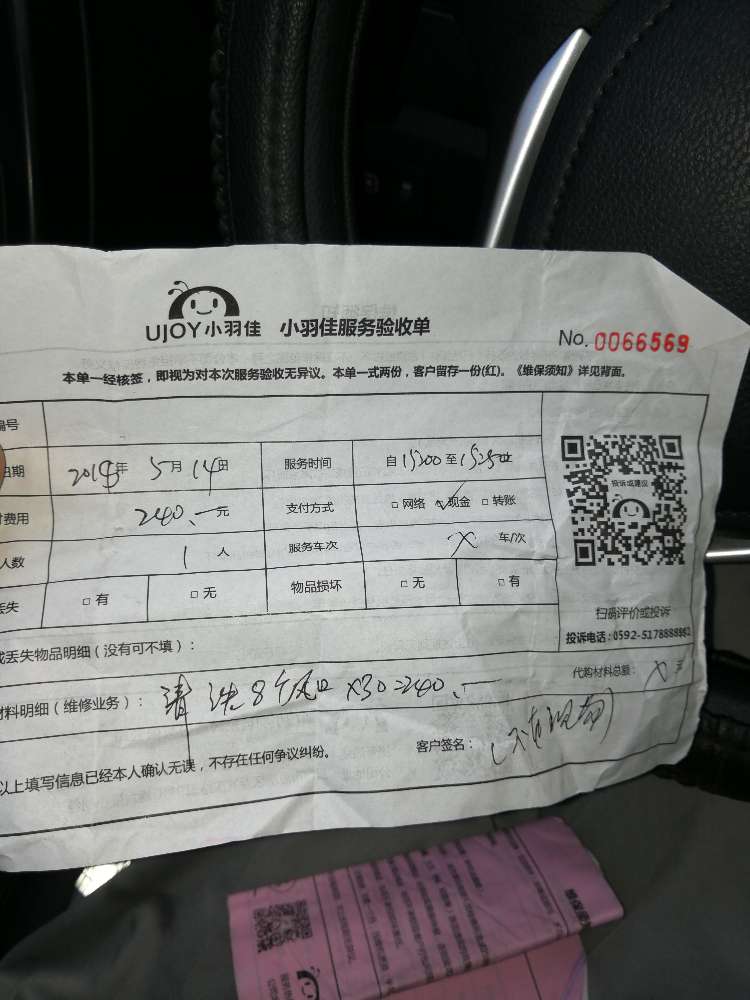 UJOY小羽佳 小羽佳服务验收单
No. 0066569
本单一经核签，即视为对本次服务验收无异议。本单一式两份，客户留存一份(红)。《维保须知》详见背面。
编号
日期 2019年 5月 14日 服务时间 自15:00至15:25止
费用 240.一元 支付方式 □网络 ☑现金 □转账
人数 1人 服务车次 X 车/次
丢失 □有 □无 物品损坏 □无 □有
投诉或建议
扫码评价或投诉
投诉电话：0592-5178888
或丢失物品明细（没有可不填）：
代购材料总额：X 元
材料明细（维修业务）：清洗8个风口X30=240.一
以上填写信息已经本人确认无误，不存在任何争议纠纷。
客户签名：(不在现场)